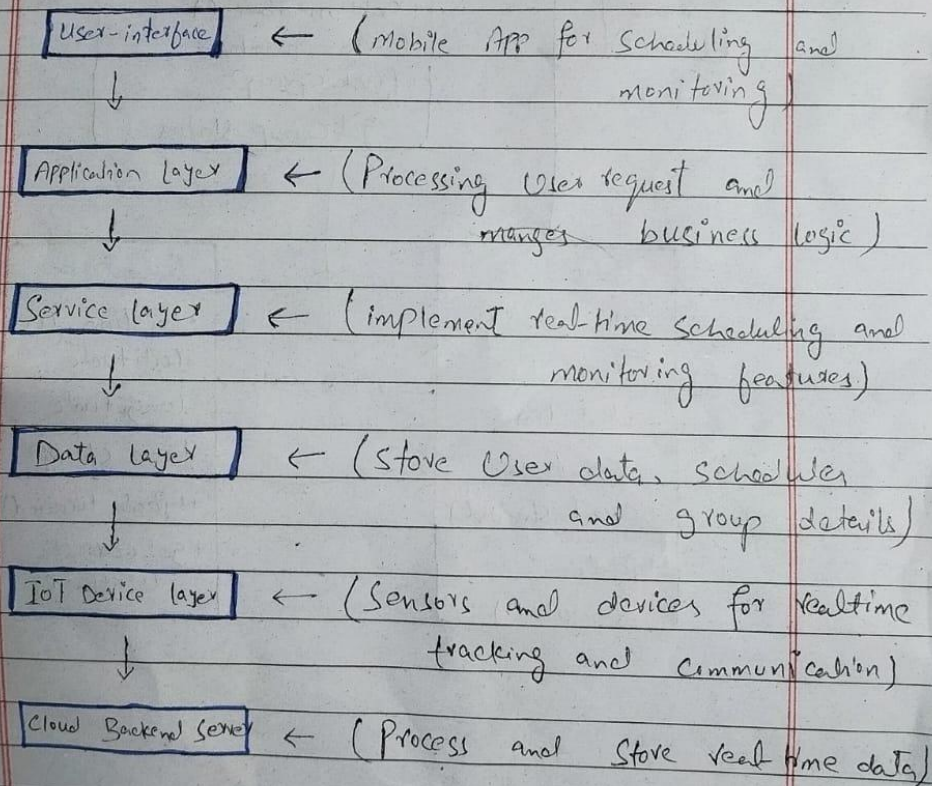 User-interface ← (Mobile App for Scheduling and
monitoring)
↓
Application layer ← (Processing User request and
manges business logic)
↓
Service layer ← (implement real-time scheduling and
monitoring features)
↓
Data layer ← (Store User data, schedules
and group details)
↓
IoT Device layer ← (Sensors and devices for realtime
tracking and communication)
↓
Cloud Backend Server ← (Process and Store real time data)